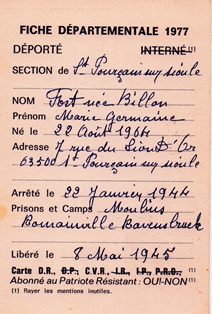 FICHE DÉPARTEMENTALE 1977
DÉPORTÉ INTERNÉ (1)
SECTION de St Pourçain sur sioule
NOM Fort née Billon
Prénom Marie Germaine
Né le 22 Août 1904
Adresse 7 rue du Lion D'Or
03500 St Pourçain sur sioule
Arrêté le 22 Janvier 1944
Prisons et Camps Moulins
Romainville Ravensbruck
Libéré le 8 Mai 1945
Carte D.R., D.P., C.V.R., I.R., I.P., P.R.O., (1)
Abonné au Patriote Résistant : OUI-NON (1)
(1) Rayer les mentions inutiles.